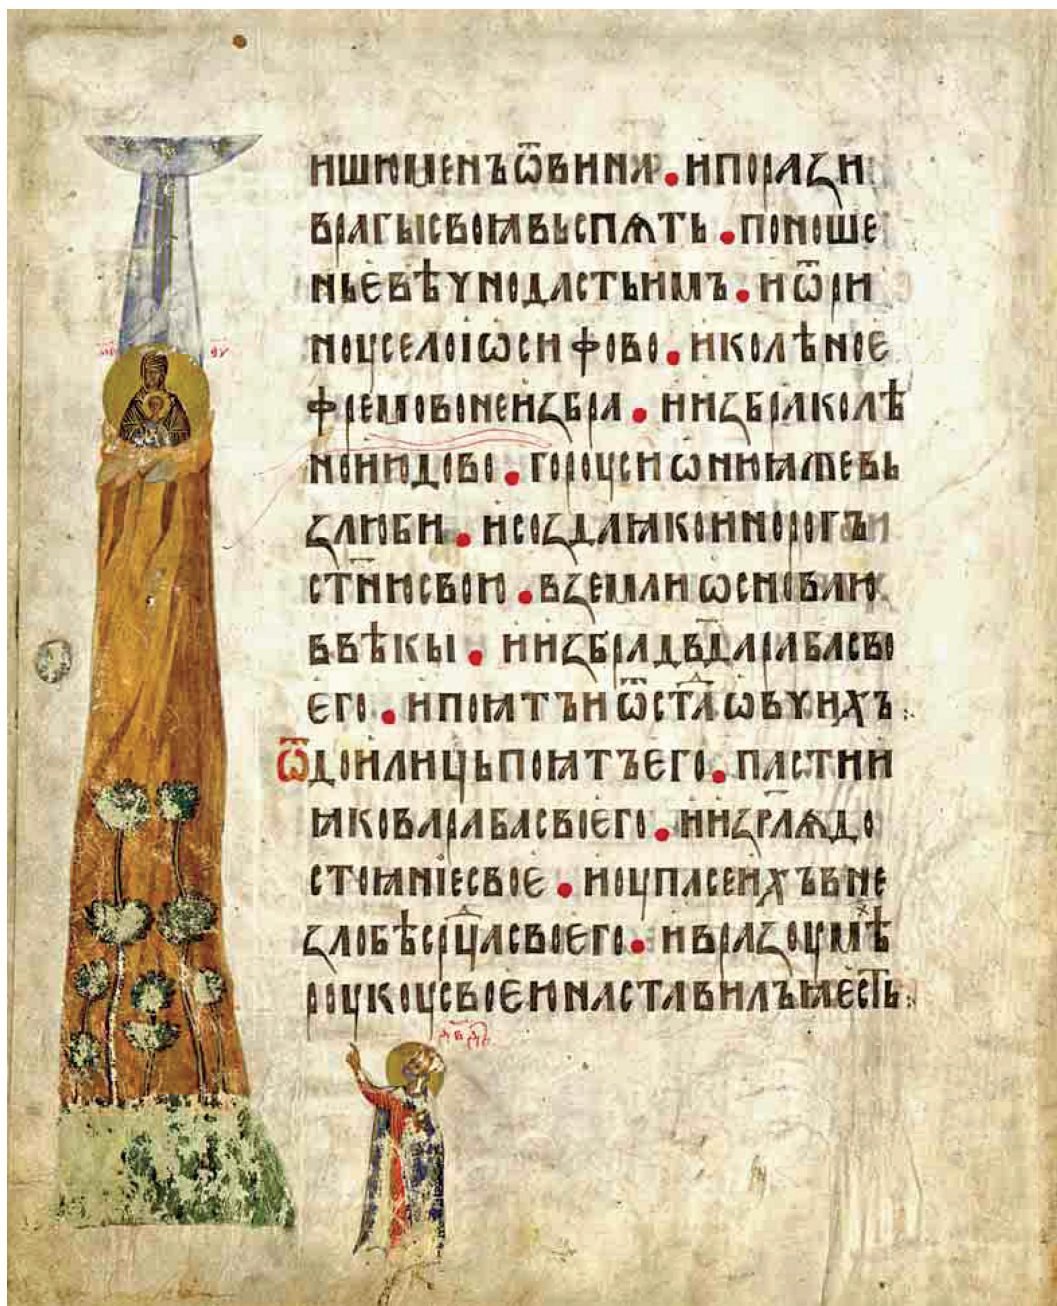 ишюменъѿвина • ипорази
врагысвоꙗвьспѧть • поноше
ньевѣчнодастьимъ • иѿри
ноуселоіѡсифово • иколѣное
фремовонеизбра • иизбраколѣ
ноиюдово • гороусиѡнюꙗжевь
злюби • исоздаꙗкоинорогъ
ст҃ниисвои • вземлиѡсновлю
ввѣкы • иизбрадв҃дарабасво
его • ипоꙗтъиѿстадъѡвчихъ
ѿдоилиць поꙗтъего • пастии
ꙗковарабасвоего • иизрл҃ѧдо
стоꙗніесвое • иоупасеихъвне
злобѣср҃цасвоего • ивразоумѣх
роукоусвоеюнаставилъꙗесть
мр҃ ѳу
дв҃дъ